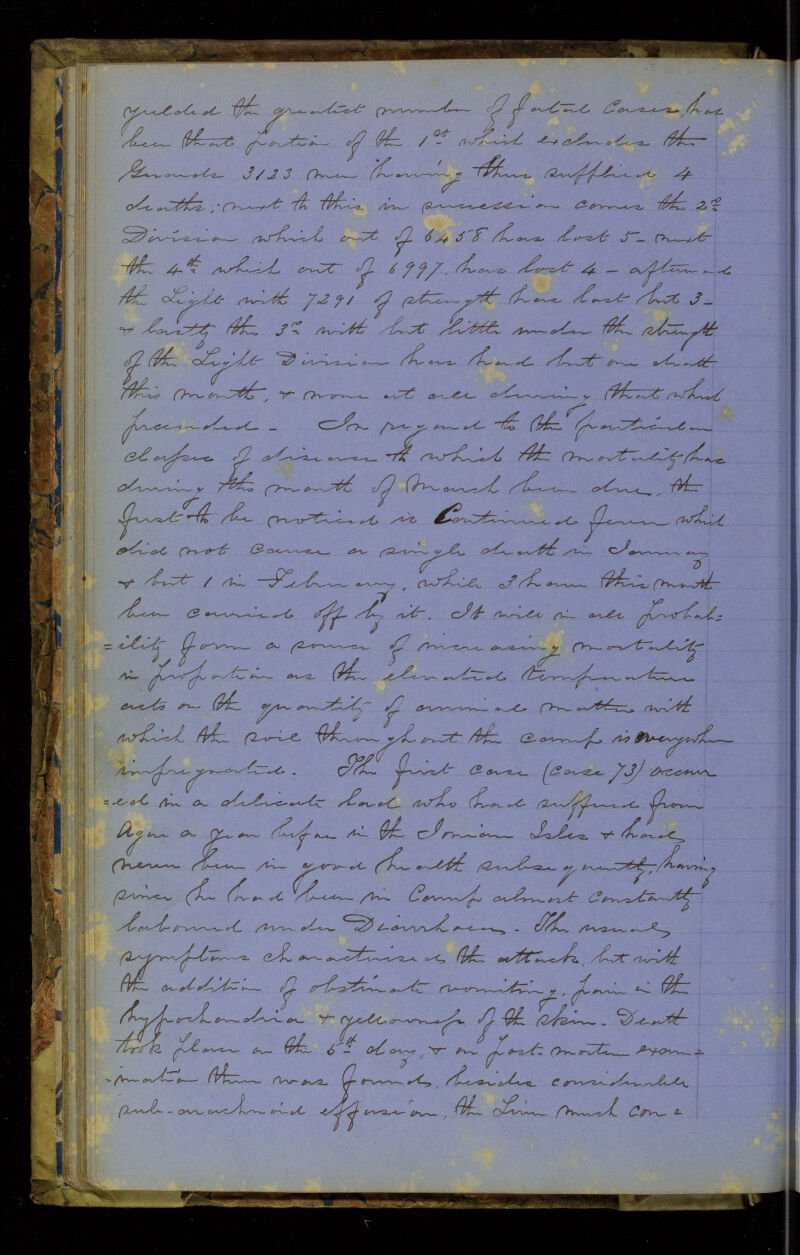 yielded the greatest number of fatal Cases, has
been that portion of the 1st which excludes the
Guards 3123 men having thus supplied 4
deaths; next to this in succession comes the 2nd
Division which out of 6458 has lost 5 - next
the 4th which out of 6997 has lost 4 - afterward
the Light with 7291 of strength has lost but 3 -
& lastly the 3rd with but little under the strength
of the Light Division has had but one death
this month, & none at all during that which
preceded - In regard to the particular
classes of disease to which the mortality has
during the month of March been due, the
first to be noticed is Continued fever which
did not cause a single death in January
& but 1 in February, while 3 have this month
been carried off by it. It will in all probab=
=ility form a source of increasing mortality
in proportion as the elevated temperature
acts on the quantity of animal matter with
which the soil throughout the camp is everywhere
impregnated. The first case (case 73) occurr
=ed in a delicate lad who had suffered from
Ague a year before in the Ionian Isles & had
never been in good health subsequently, having
since he had been in Camp almost constantly
laboured under Diarrhoea. The usual
symptoms characterised the attack, but with
the addition of obstinate vomiting, pain in the
hypochondria & yellowness of the skin. Death
took place on the 5th day, & on post-mortem exam=
=ination there was found, besides considerable
sub-arachnoid effusion, the Liver much con=